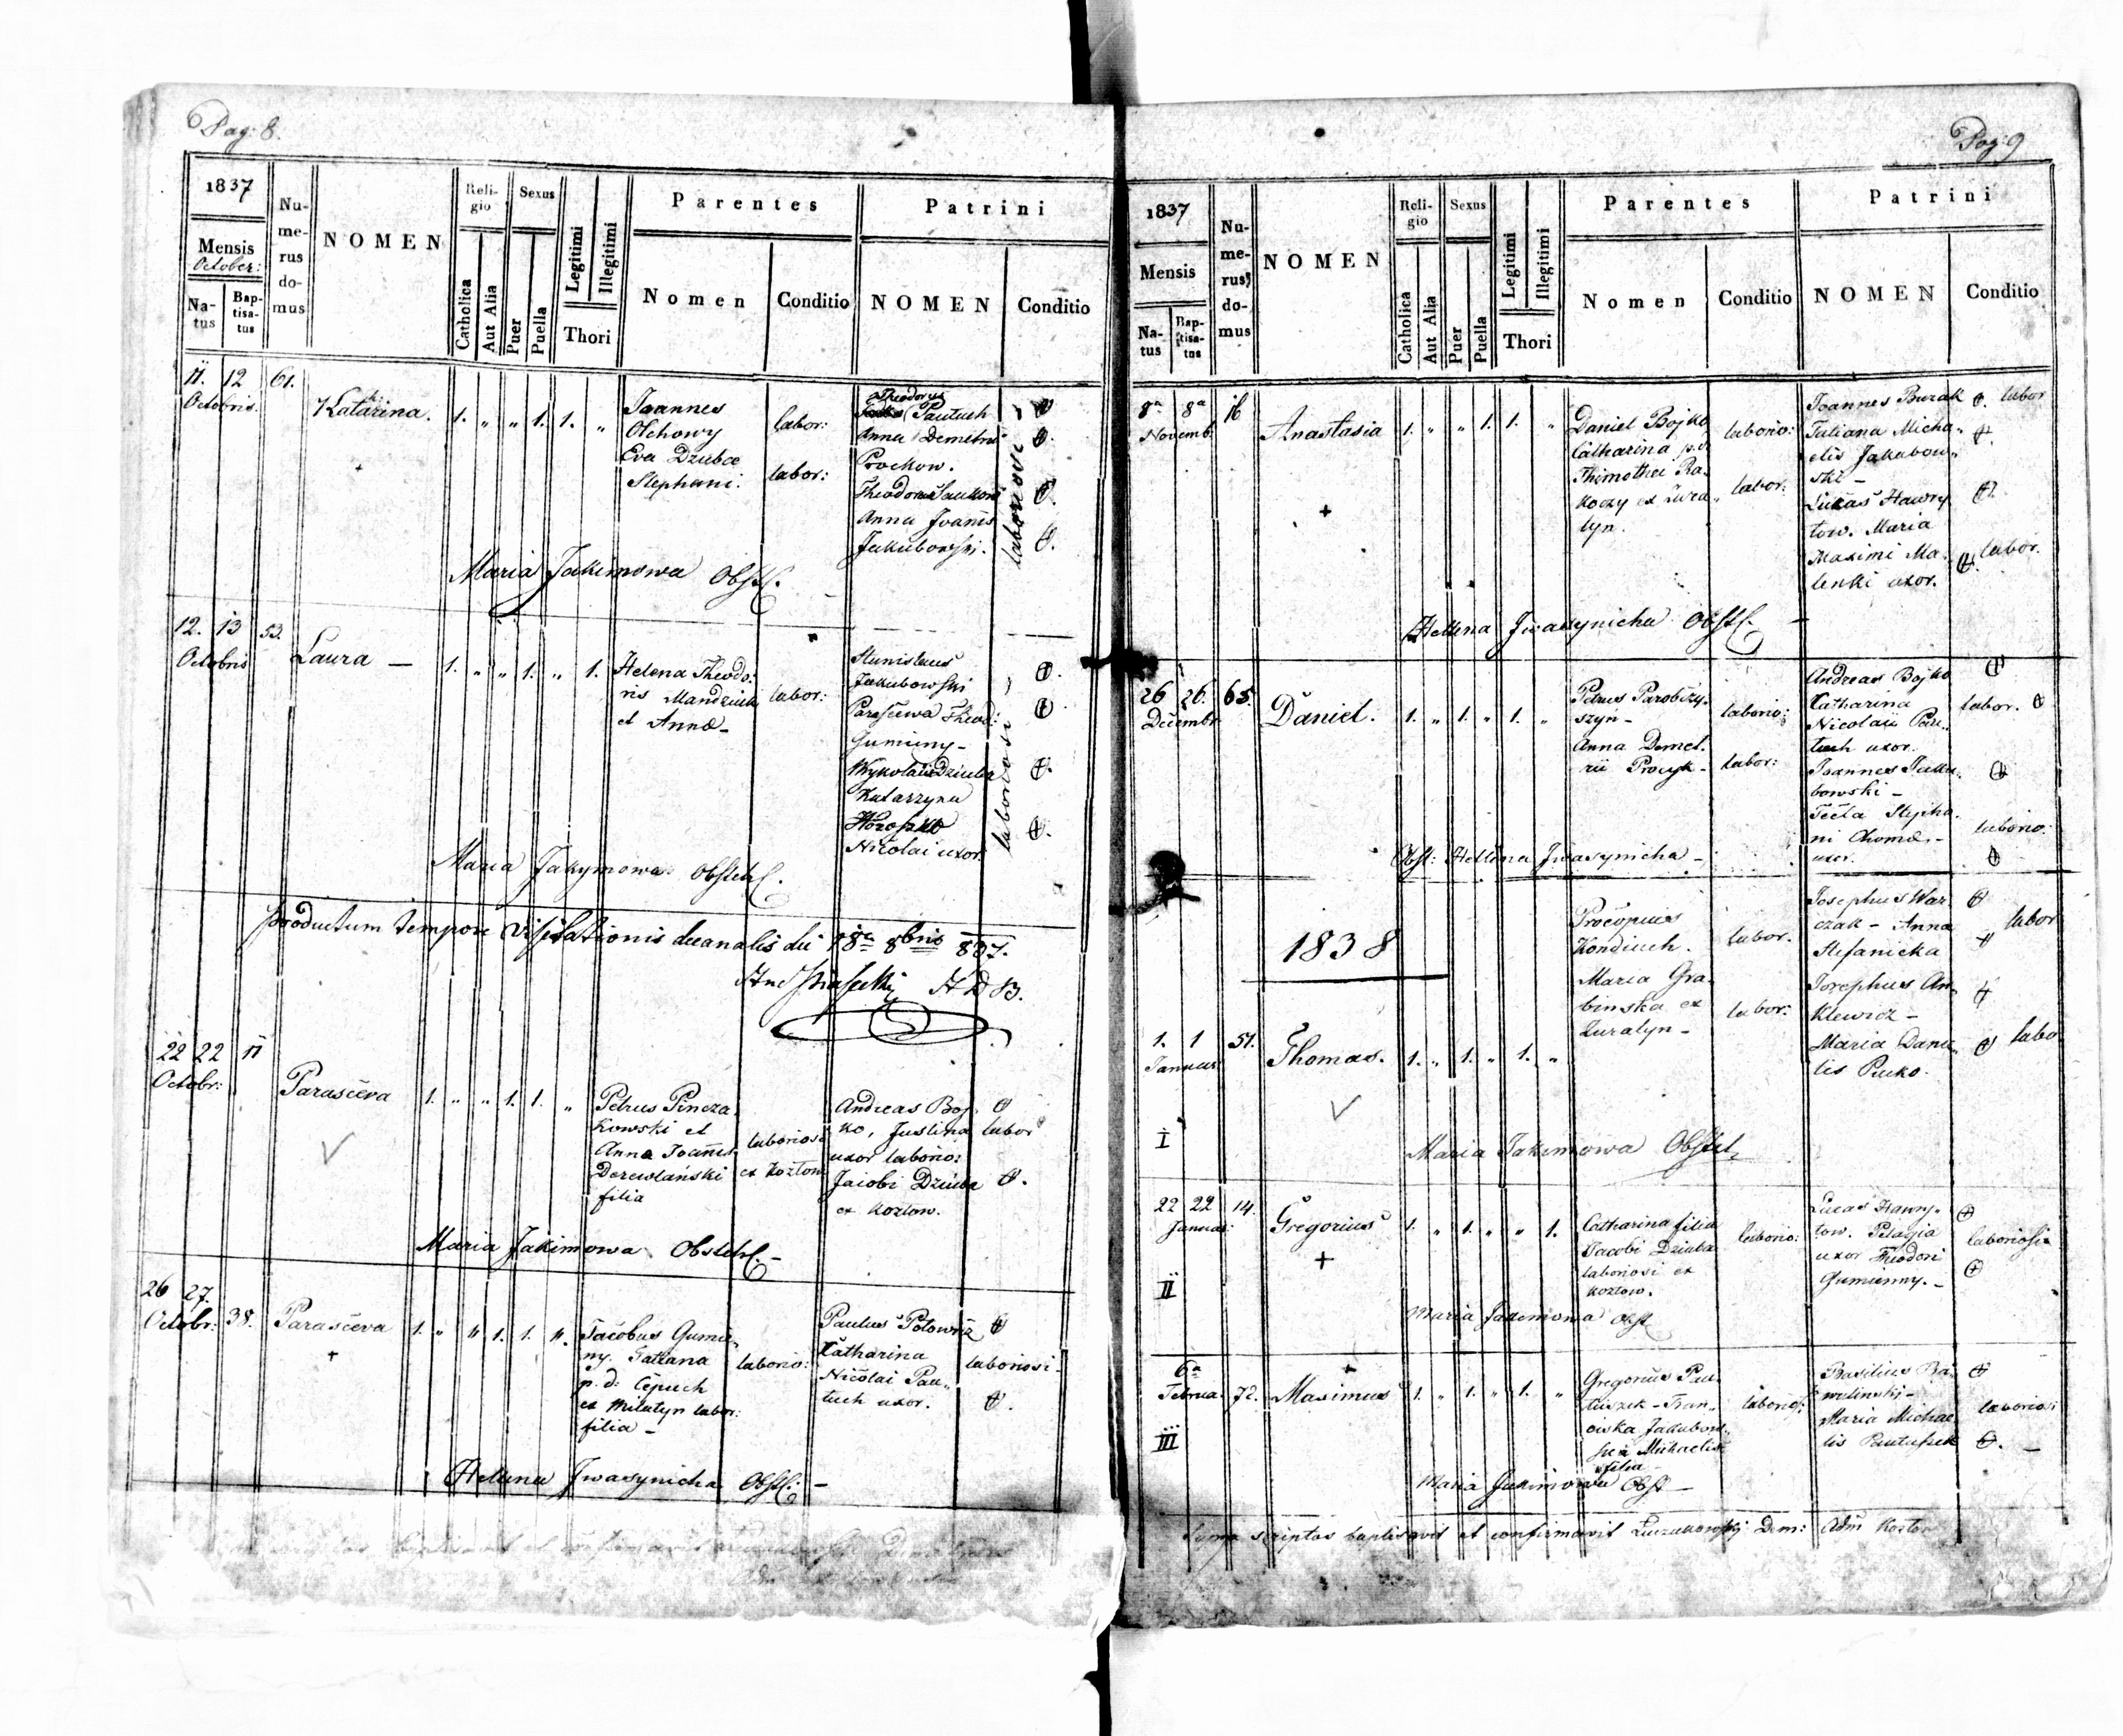 Pag: 8.
1837
Mensis
October:
Na-
tus
Bap-
tisa-
tus
Nu-
me-
rus
do-
mus
NOMEN
Reli-
gio
Catholica
Aut Alia
Sexus
Puer
Puella
Legitimi
Illegitimi
Thori
Parentes
Nomen
Conditio
Patrini
NOMEN
Conditio
11. 12 61.
Octobris.
Katarina.
1. „ „ 1. 1. „
Joannes
Olchowy
Eva Dziubae
Stephani.
labor:
labor:
Theodorus
Pautuch
Anna Demetrii
Prockow.
Theodorus
Anna Joanis
Jakubowski.
laboriosi
Maria Jakimowa Obst.
12. 13 53.
Octobris
Laura —
1. „ „ 1. „ 1.
Helena Theodo:
ris Mandziuk
et Annae –
labor:
Stanislaus
Jakubowski
Parasčewa Theod:
Gumiuny –
Wykolaii Dziuba
Katarzyna
Horoszko
Nicolai uxor.
laboriosi
Maria Jakymowa Obstet.
productum tempore visitationis decanalis die 18va 8bris 837.
22 22 11
Octobr:
Parasčeva
1. „ „ 1. 1. „
Petrus Pincza
kowski et
Anna Joannis
Derewlański
filia
laboriosi
ex Kozłow
Andreas Boj
ko, Justina
uxor laborio:
Jacobi Dziuba
ex Kozłow.
labor
Maria Jakimowa Obstet. –
26 27.
Octobr: 38.
Parasčeva
+
1. „ „ 1. 1. „
Jacobus Gumiu
ny. Tatiana
p. d: Cepuch
ex Milatyn labor:
filia –
laborio:
Paulus Potowicz
Katharina
Nicolai Pau„
tuch uxor.
laboriosi
Hellena Jwasynicha Obst: –
Pag: 9
1837
Mensis
Na-
tus
Bap-
tisa-
tus
Nu-
me-
rus
do-
mus
NOMEN
Reli-
gio
Catholica
Aut Alia
Sexus
Puer
Puella
Legitimi
Illegitimi
Thori
Parentes
Nomen
Conditio
Patrini
NOMEN
Conditio
8a 8a 16
Novemb.
Anastasia
+
1. „ „ 1. 1. „
Daniel Bojko
Catharina p.d.
Thimothei Ra„
koczy ex Zura„
tyn.
laborio:
labor:
Joannes Burak
Tatiana Micha„
elis Jakubow„
ski –
Lukas Hawry
low. Maria
Maximi Ma„
lenki uxor.
labor
labor.
Hellena Jwasynicha Obst.
26 26 65.
Decembr
Daniel.
1. „ 1. „ 1. „
Petrus Parobczy„
szyn –
Anna Demet.
rii Procyk –
laborio:
labor:
Andreas Bojko
Katharina
Nicolaii Pau„
tuch uxor.
Joannes Jaku„
bowski –
Tecla Stepha„
ni Chomae –
uxor.
labor.
laborio:
Obst: Hellena Jwasynicha –
1838
1. 1 51.
Januar:
Thomas.
1. „ 1. „ 1. „
Procopius
Kondiuch.
Maria Gra„
binska ex
Zuratyn –
labor.
labor:
Josephus War„
czak – Anna
Stefanicka
Josephus An„
klewicz –
Maria Danie
lis Pucko.
labor
labo
I
Maria Jakimowa Obstet.
22 22 14.
Januar:
Gregorius
+
1. „ 1. „ „ 1.
Catharina filia
Jacobi Dziuba
laboriosi ex
Kozłow.
laborio:
Lucas Hawry„
low. Pelagia
uxor Theodori
Gumiuny. –
laboriosi
II
Maria Jakimowa Obst
6a
Februa. 72.
+
Maximus
1. „ 1. „ 1. „
Gregorius Pau„
tuszek – Fran„
ciska Jakubow„
ska Michaelis
filia –
laborios:
Basilius Ba„
wulinski –
Maria Michae
lis Pautuszek
laboriosi
III
Maria Jakimowa Obst –
Supra scriptos baptisavit et confirmavit Dem: Adm Kozłow